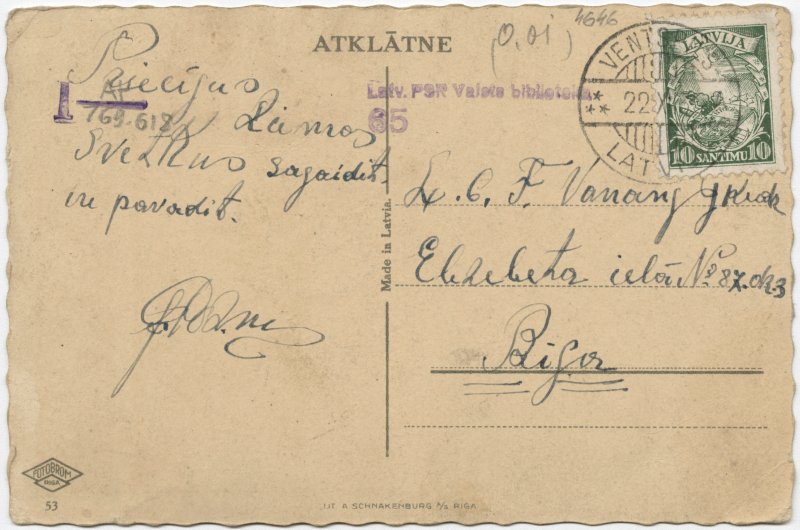 ATKLĀTNE
(0,01)
4646
Priecīgus
Ziemas
svētkus sagaidīt
un pavadīt.
I
AP
769.618
Latv. PSR Valsts bibliotēka
65
VENTS
22.X
LATV
LATVIJA
10 SANTIMU 10
L. C. F. Vanang Kndz
Elizabeta ielā No 87. dz. 3
Rigā
Made in Latvia.
FOTOBROM
RIGA
53
LIT. A SCHNAKENBURG A/S RIGA